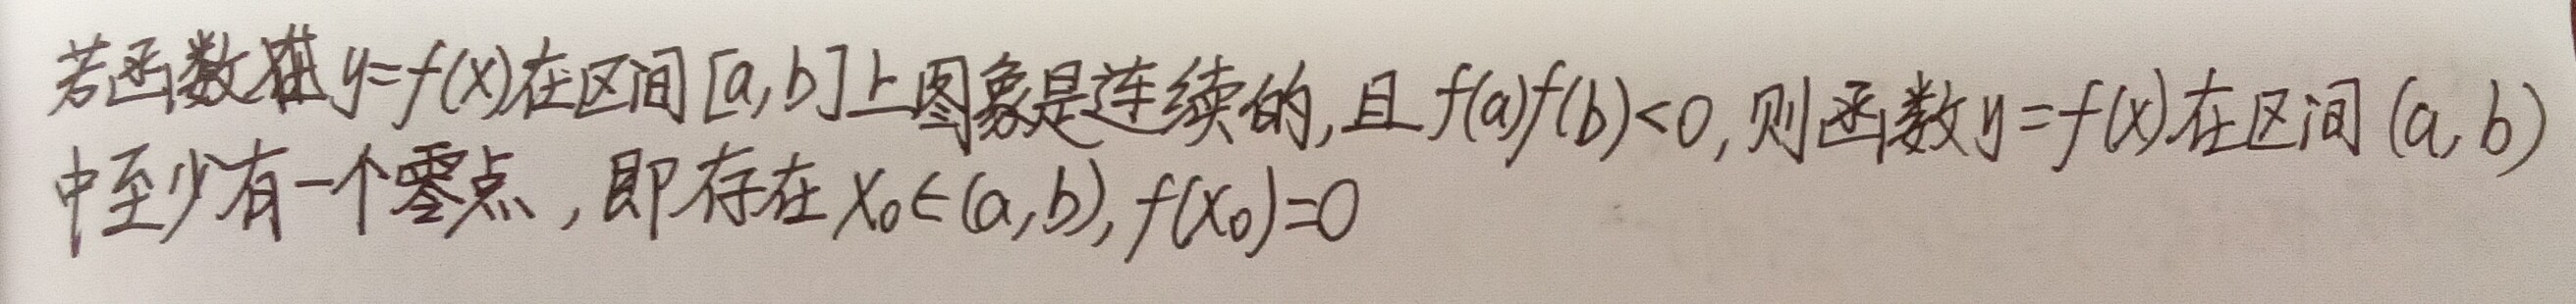 若函数y=f(x)在区间[a,b]上图象是连续的,且f(a)f(b)<0,则函数y=f(x)在区间(a,b)
中至少有一个零点,即存在x₀∈(a,b),f(x₀)=0